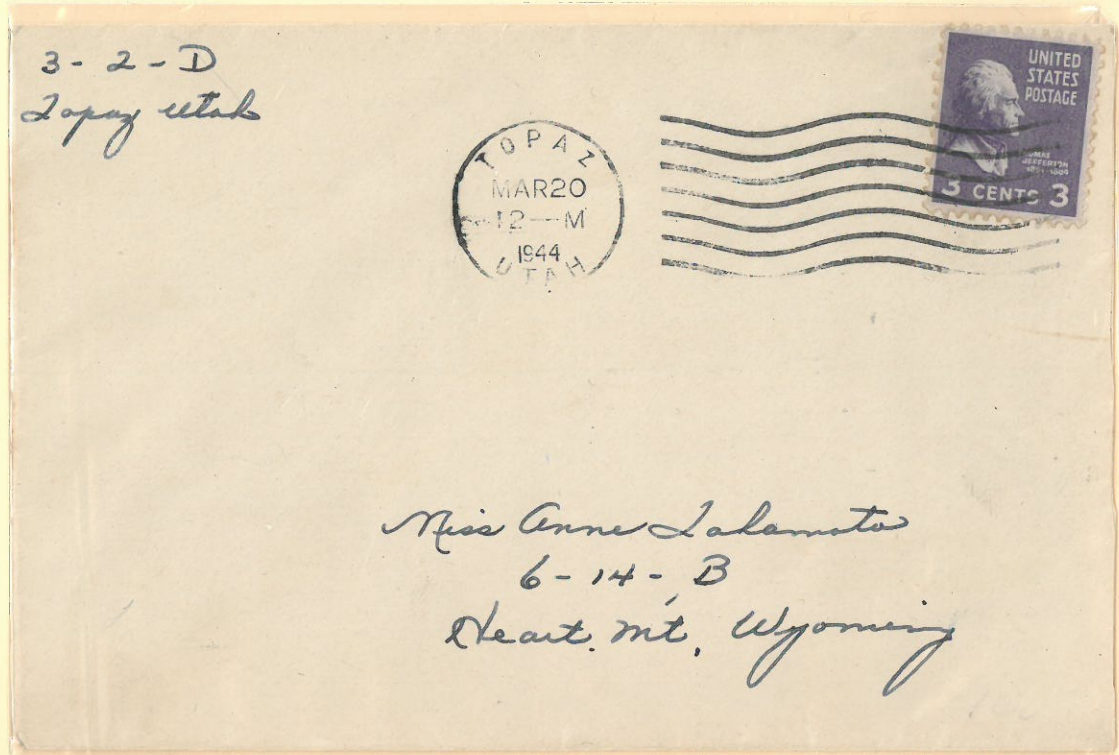 3 - 2 - D
Topaz Utah
TOPAZ
MAR 20
12 — M
1944
UTAH
UNITED
STATES
POSTAGE
JEFFERSON
3 CENTS 3
Miss Anne Takamoto
6 - 14 - B
Heart Mt, Wyoming